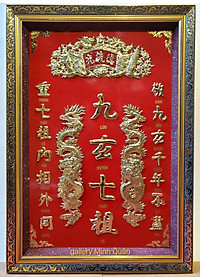 敬九玄千年不盡
九玄七祖
重七祖內相外同
gallery Minh Quân